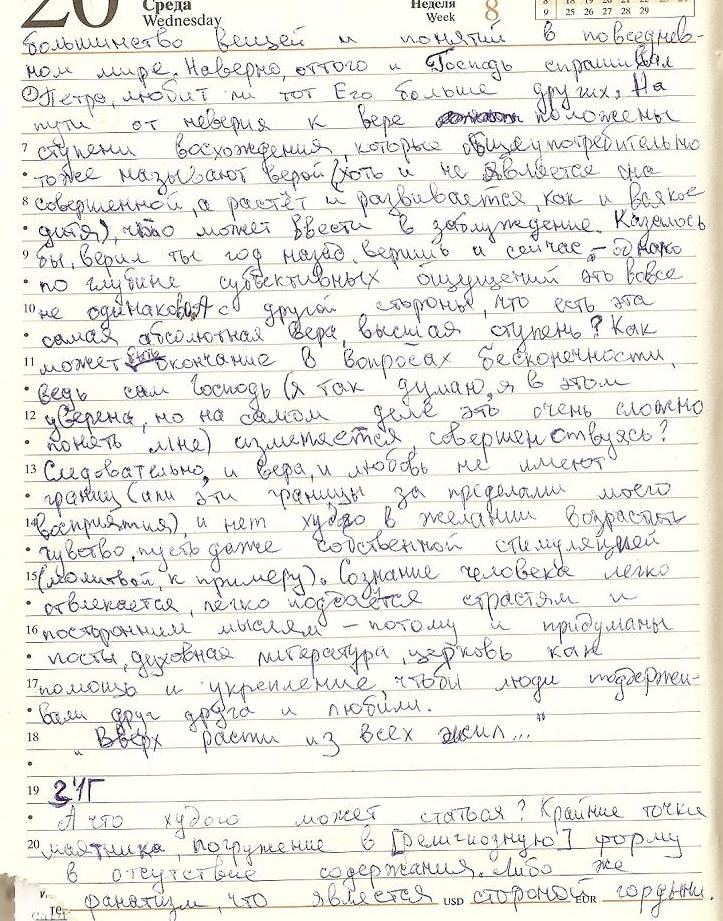 20 Среда Wednesday Неделя Week 8
9 25 26 27 28 29
большинство вещей и понятий в повседнев-
ном мире. Наверно, оттого и Господь спрашивал
Петра, любит ли тот Его больше других. На
пути от неверия к вере положены
7 ступени восхождения, которые общеупотребительно
тоже называют верой (хоть и не является она
8 совершенной, а растёт и развивается, как и всякое
дитя), что может ввести в заблуждение. Казалось
9 бы, верил ты год назад, веришь и сейчас, – однако
по глубине субъективных ощущений это вовсе
10 не одинаково. А с другой стороны, что есть эта
самая абсолютная вера, высшая ступень? Как
11 может быть окончание в вопросах бесконечности,
ведь сам Господь (я так думаю, я в этом
12 уверена, но на самом деле это очень сложно
понять мне) изменяется, совершенствуясь?
13 Следовательно, и вера, и любовь не имеют
границ (или эти границы за пределами моего
14 восприятия), и нет худого в желании возрастить
чувство, пусть даже собственной стимуляцией
15 (молитвой, к примеру). Сознание человека легко
отвлекается, легко поддаётся страстям и
16 посторонним мыслям – потому и придуманы
посты, духовная литература, церковь как
17 помощь и укрепление, чтобы люди поддержи-
вали друг друга и любили.
18 „Вверх расти из всех жил..."
19 2ЧГ
А что худого может статься? Крайние точки
20 маятника, погружение в [религиозную] форму
в отсутствие содержания. Либо же
фанатизм, что является USD стороной EUR гордыни.